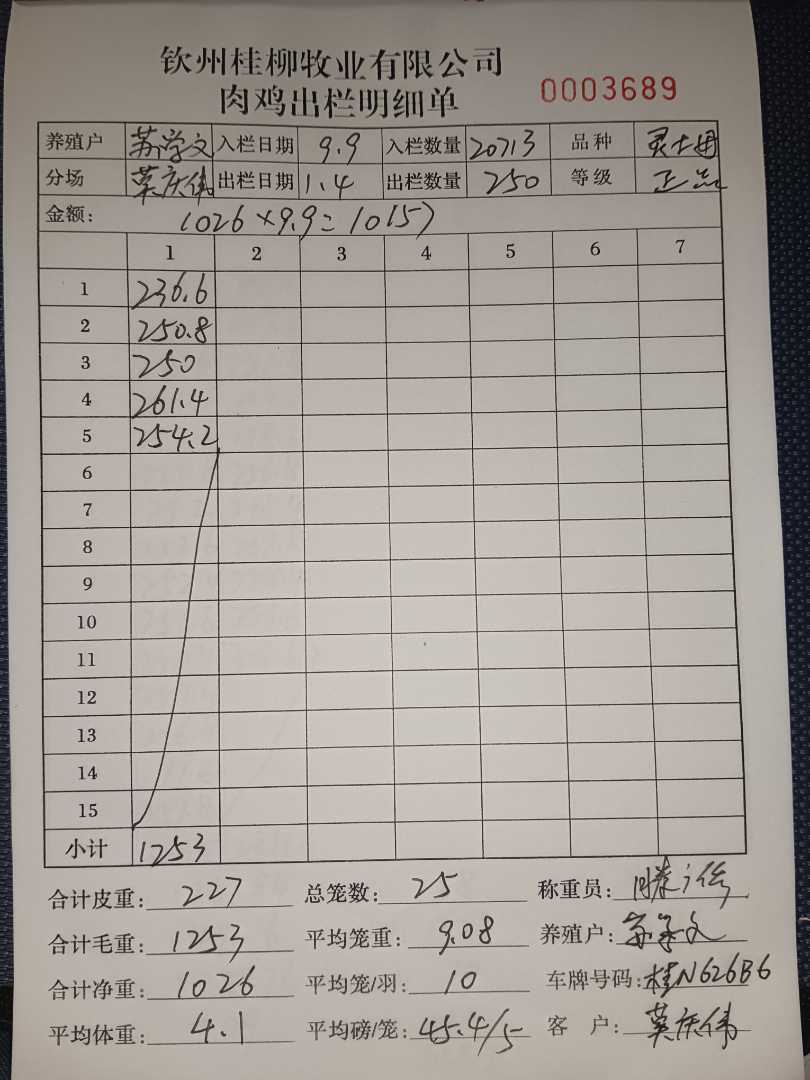 钦州桂柳牧业有限公司
肉鸡出栏明细单
0003689
养殖户 苏学文 入栏日期 9.9 入栏数量 20713 品种
分场 莫庆伟 出栏日期 1.4 出栏数量 250 等级 正品
金额: 1026×9.9=10157
1 2 3 4 5 6 7
1 236.6
2 250.8
3 250
4 261.4
5 254.2
6
7
8
9
10
11
12
13
14
15
小计 1253
合计皮重: 227 总笼数: 25 称重员:
合计毛重: 1253 平均笼重: 9.08 养殖户: 苏学文
合计净重: 1026 平均笼/羽: 10 车牌号码: 桂N626B6
平均体重: 4.1 平均磅/笼: 45.4/5 客 户: 莫庆伟